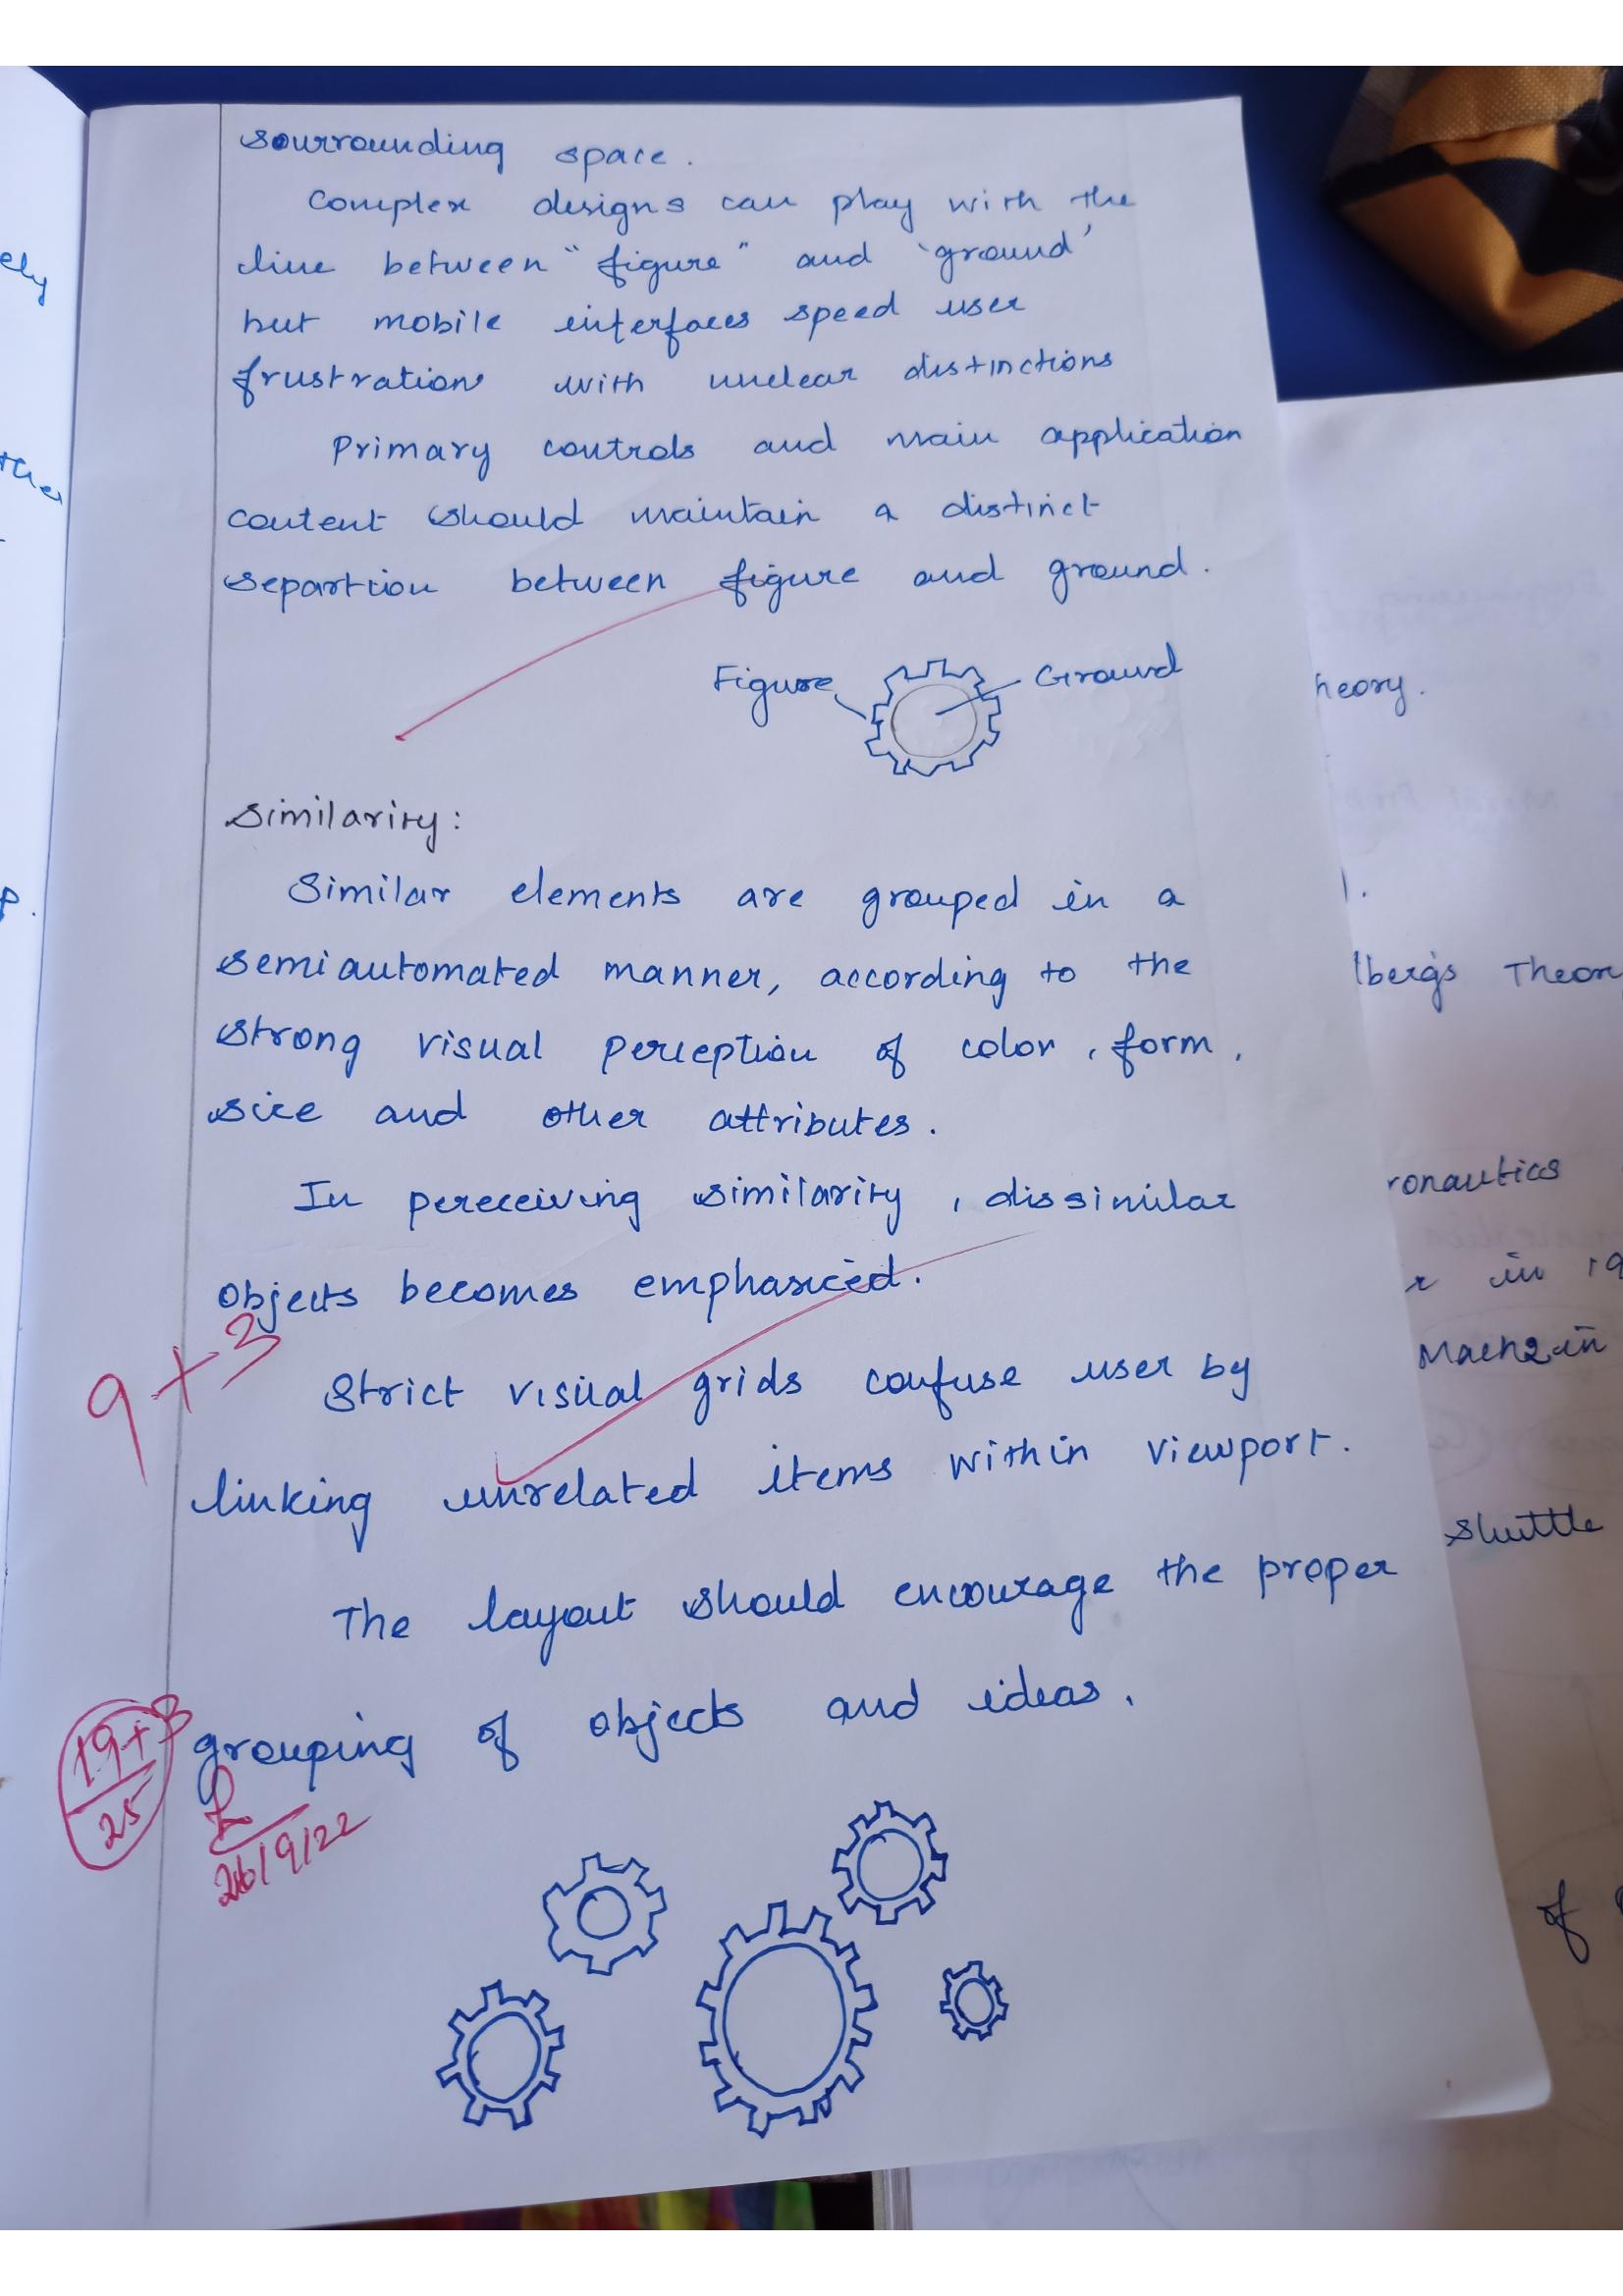 sourrounding space.
Complex designs can play with the
line between "figure" and 'ground'
but mobile interfaces speed user
frustration with unclear distinctions
Primary controls and main application
content should maintain a distinct
separtion between figure and ground.
Figure Ground
Similarity:
Similar elements are grouped in a
semiautomated manner, according to the
strong visual perception of color, form,
size and other attributes.
In pereceiving similarity, dissimilar
objects becomes emphasized.
9+3
Strict visual grids confuse user by
linking unrelated items within viewport.
The layout should encourage the proper
grouping of objects and ideas.
19+3
25
26/9/22
ely
p.
heory.
lberg's Theor
ronautics
in 19
Mach2 in
shuttle
of